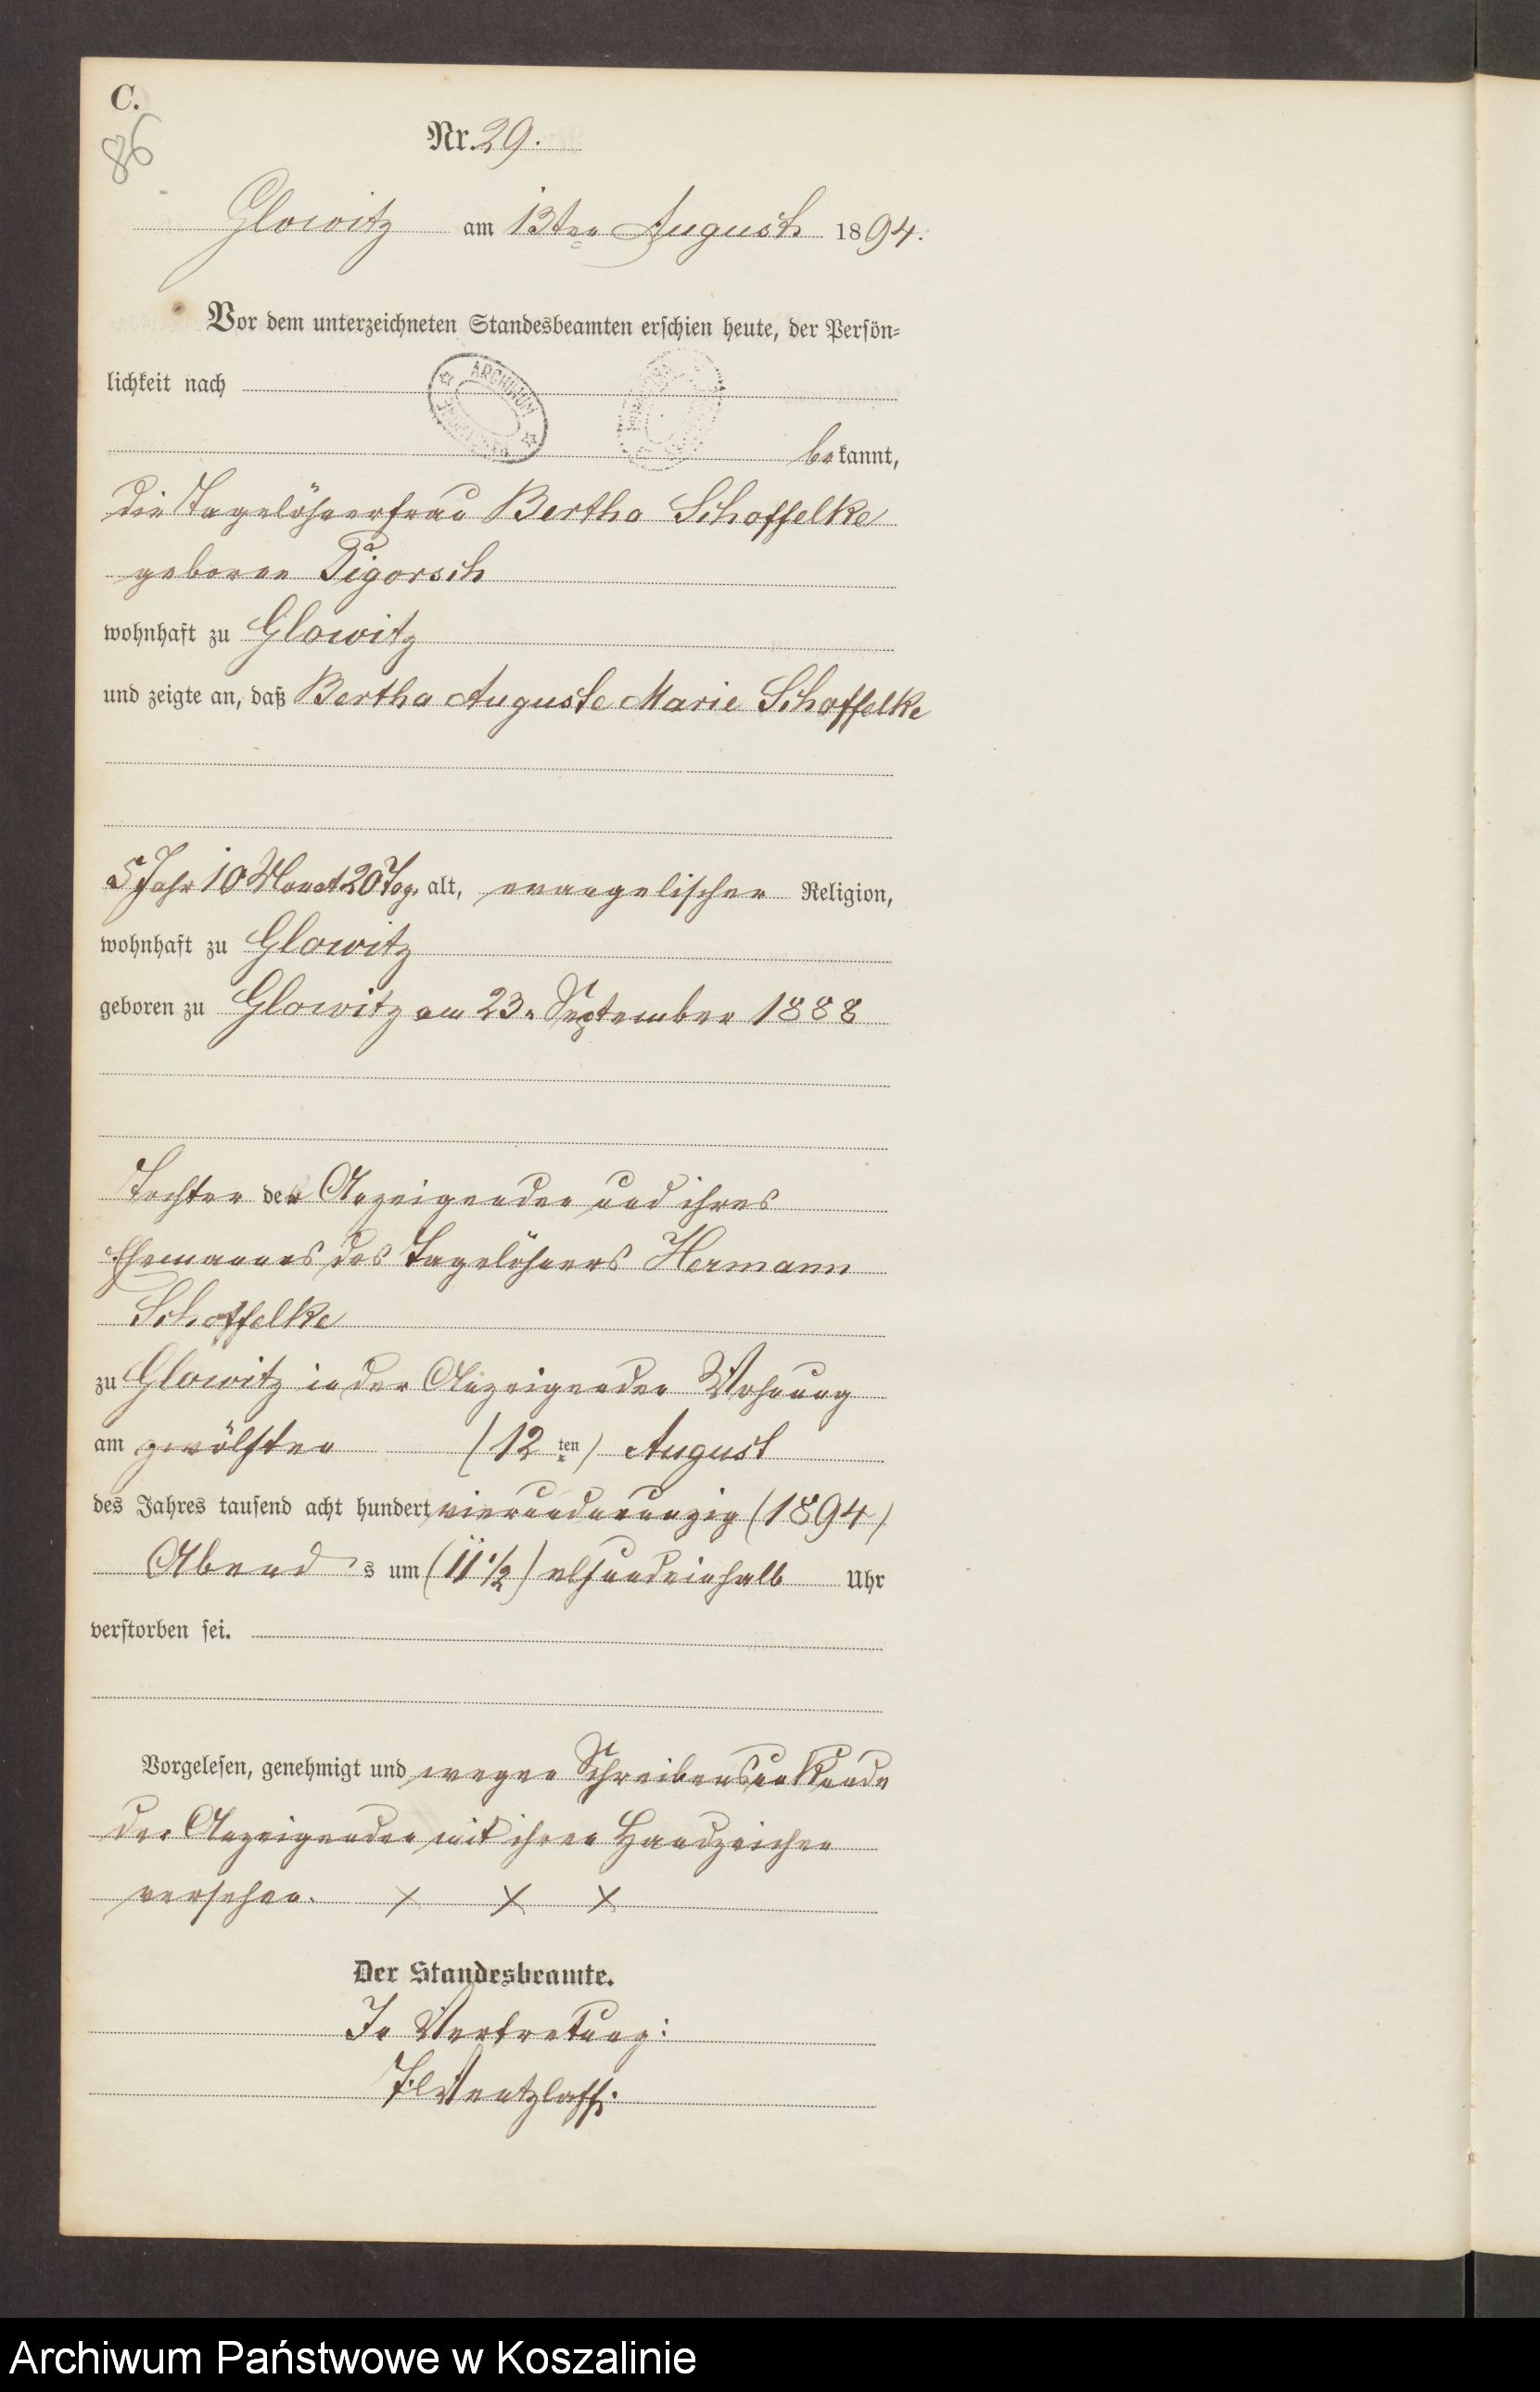 C.
86
Nr. 29.
Glowitz am 13ten August 1894.
Vor dem unterzeichneten Standesbeamten erschien heute, der Persön-
lichkeit nach
ARCHIWUM
bekannt,
die Tagelöhnerfrau Bertha Schoffelke
geboren Pigorsch
wohnhaft zu Glowitz
und zeigte an, daß Bertha Auguste Marie Schoffelke
5 Jahr 10 Monat 20 Tag. alt, evangelischer Religion,
wohnhaft zu Glowitz
geboren zu Glowitz am 23. September 1888
Tochter der Anzeigenden und ihres
Ehemannes des Tagelöhners Hermann
Schoffelke
zu Glowitz in der Anzeigenden Wohnung
am zwölften (12 ten) August
des Jahres tausend acht hundert vierundneunzig (1894)
Abend s um (11 1/2) elfundeinhalb Uhr
verstorben sei.
Vorgelesen, genehmigt und wegen Schreibensunkunde
der Anzeigenden mit ihren Handzeichen
versehen. x x x
Der Standesbeamte.
In Vertretung:
Wentzlaff.
Archiwum Państwowe w Koszalinie